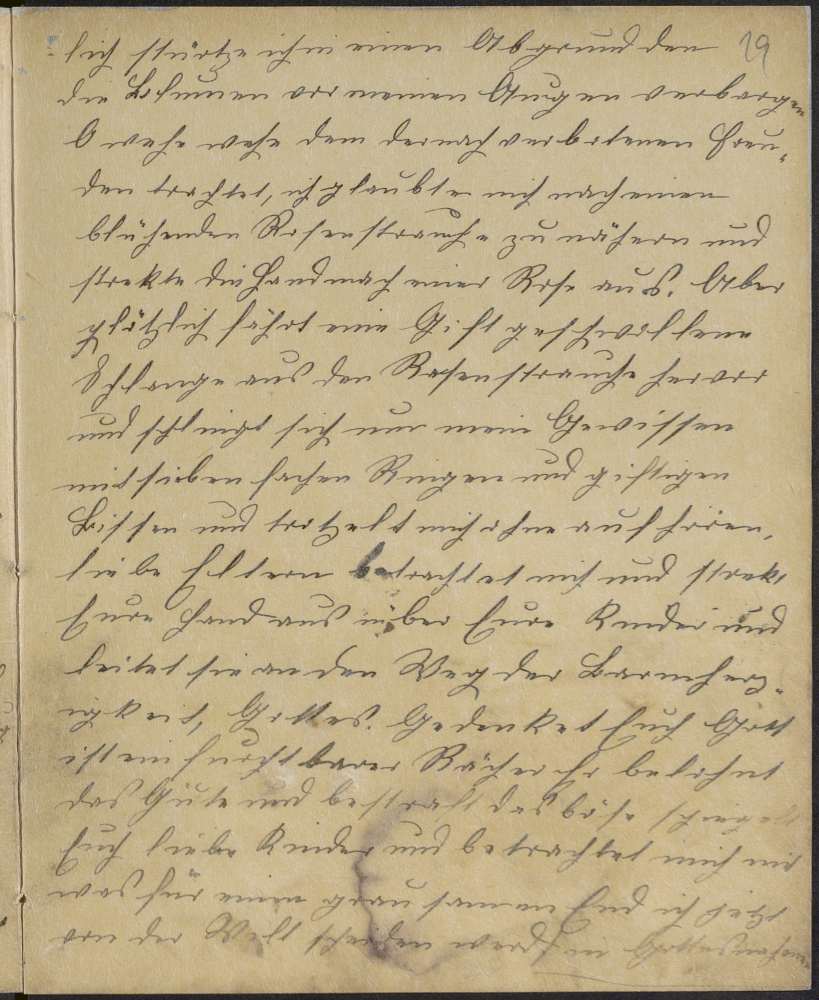 19
lich stürtze ich in einen Abgrund den
die Blumen vor meinen Augen verbargen
O wehe wehe dem der nach verbotenen Freu-
den trachtet, ich glaubte mich nach einen
blühenden Rosenstrauche zu nähern und
strekte die Hand nach einer Rose aus. Aber
plötzlich fährt eine Gift geschwollene
Schlange aus den Rosenstrauche hervor
und schlingt sich um mein Gewissen
mit sieben fachen Ringen und giftigen
Bissen und mich ohne aufhören,
liebe Eltern betrachtet mich und strekt
Eure Hand aus über Eure Kinder und
leitet sie an den Weg der Barmherz-
igkeit, Gottes. Gedenket Euch Gott
ist ein furchtbarer Rächer Er belohnt
das Gute und bestraft das böse spiegelt
Euch liebe Kinder und betrachtet mich mit
was für einen grausamen End ich jetzt
von der Welt scheiden werde in Gottesnahmen